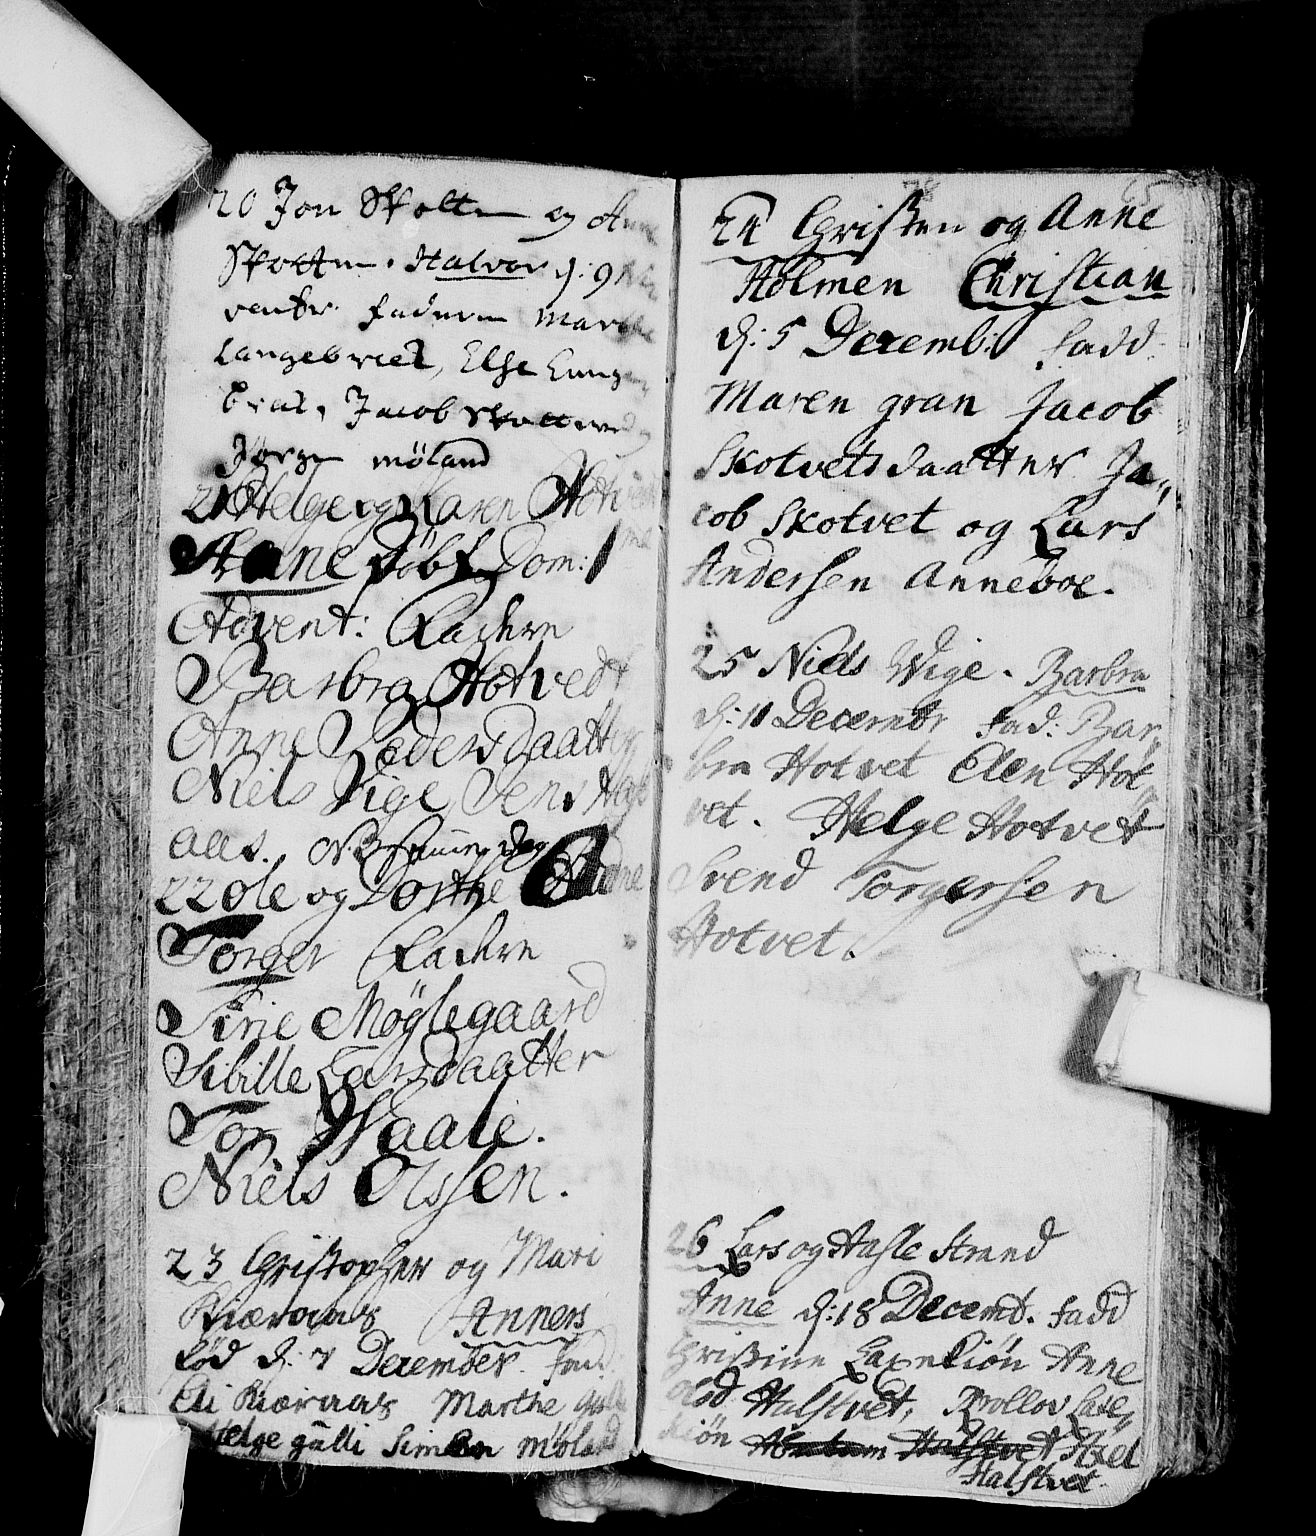 20 Jon Skotten og Anne
Skotten. Halvor d: 9
Fadderne Marthe
Langebrek, Else Lange
brek, Jacob Skotten
Jörgen möland
21 Helge og Karen Hotvedt
Anne döbt Dom: 1
Advent: Faderne
Barbra Hotvedt
Anne Pedersdaatter
Niels Vige, Jens
aas.
22 Ole og Dorthe
Torger Faderne
Sirie Møglegaard
Sibille Larsdaatter
Tor Haale.
Niels Olssen.
23 Christopher og Mari
Kiæraas Anners
fød d: 7 December. Fad:
Eli Kiæraas Marthe gulli
Helge gulli Simen möland
24 Christen og Anne
Holmen Christian
d: 5 Decemb: Fadd
Maren gran Jacob
Skotvets daatter Ja,,
cob Skotvet og Lars
Andersen Anneboe.
25 Niels Wige. Barbra
d: 11 Decembr Fad: Bar,,
bra Hotvet Elen Hot,,
vet. Helge Hotvet
Svend Torgersen
Hotvet.
26 Lars og Strand
Anne d: 18 Decemb. Fadd
Christine Laxekiön Anne
Halstvet, Laxe,,
kiön Axel
Halstvet.